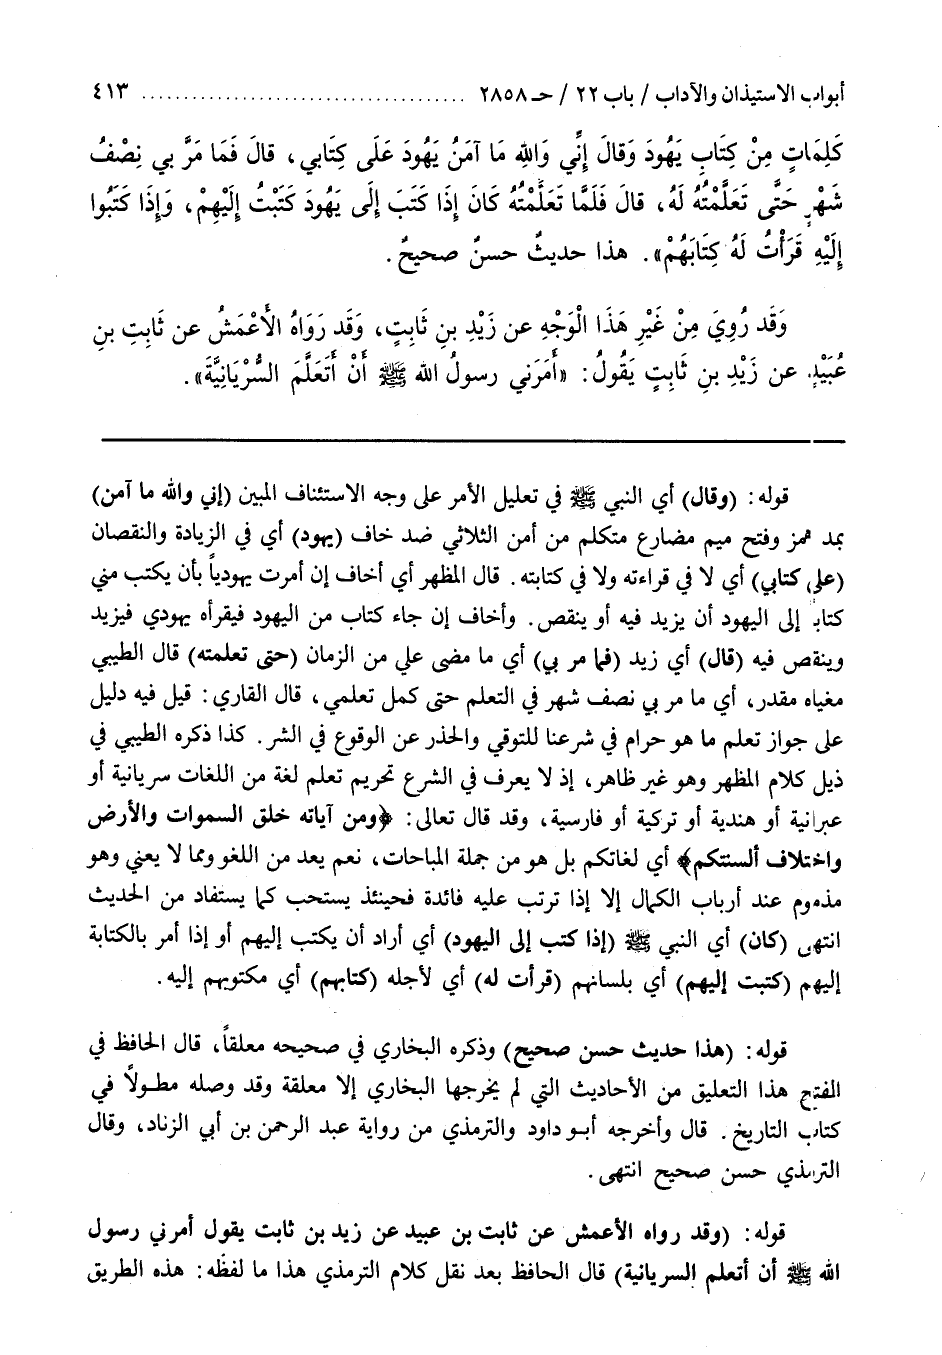 أبواب الاستيذان والآداب / باب ٢٢ / حـ ٢٨٥٨ ....................................... ٤١٣
كَلِمَاتٍ مِنْ كِتَابِ يَهُودَ وَقَالَ إِنِّي وَاللهِ مَا آمَنُ يَهُودَ عَلَى كِتَابي، قالَ فَمَا مَرَّ بي نِصْفُ
شَهْرٍ حَتَّى تَعَلَّمْتُهُ لَهُ، قالَ فَلَمَّا تَعَلَّمْتُهُ كَانَ إِذَا كَتَبَ إِلَى يَهُودَ كَتَبْتُ إِلَيْهِمْ، وَإِذَا كَتَبُوا
إِلَيْهِ قَرَأْتُ لَهُ كِتَابَهُمْ». هذا حديثٌ حسنٌ صحيحٌ.
وَقَد رُوِيَ مِنْ غَيْرِ هَذَا الْوَجْهِ عن زَيْدِ بنِ ثَابِتٍ، وَقَد رَوَاهُ الأَعْمَشُ عن ثَابِتِ بنِ
عُبَيْدٍ عن زَيْدِ بنِ ثَابِتٍ يَقُولُ: «أَمَرَني رسولُ الله ﷺ أَنْ أَتَعَلَّمَ السُّرْيَانِيَّةَ».
قوله: (وقال) أي النبي ﷺ في تعليل الأمر على وجه الاستئناف المبين (إني والله ما آمن)
بمد همز وفتح ميم مضارع متكلم من أمن الثلاثي ضد خاف (يهود) أي في الزيادة والنقصان
(على كتابي) أي لا في قراءته ولا في كتابته. قال المظهر أي أخاف إن أمرت يهودياً بأن يكتب مني
كتاباً إلى اليهود أن يزيد فيه أو ينقص. وأخاف إن جاء كتاب من اليهود فيقرأه يهودي فيزيد
وينقص فيه (قال) أي زيد (فما مر بي) أي ما مضى علي من الزمان (حتى تعلمته) قال الطيبي
مغياه مقدر، أي ما مر بي نصف شهر في التعلم حتى كمل تعلمي، قال القاري: قيل فيه دليل
على جواز تعلم ما هو حرام في شرعنا للتوقي والحذر عن الوقوع في الشر. كذا ذكره الطيبي في
ذيل كلام المظهر وهو غير ظاهر، إذ لا يعرف في الشرع تحريم تعلم لغة من اللغات سريانية أو
عبرانية أو هندية أو تركية أو فارسية، وقد قال تعالى: ﴿ومن آياته خلق السموات والأرض
واختلاف ألسنتكم﴾ أي لغاتكم بل هو من جملة المباحات، نعم يعد من اللغو ومما لا يعني وهو
مذموم عند أرباب الكمال إلا إذا ترتب عليه فائدة فحينئذ يستحب كما يستفاد من الحديث
انتهى (كان) أي النبي ﷺ (إذا كتب إلى اليهود) أي أراد أن يكتب إليهم أو إذا أمر بالكتابة
إليهم (كتبت إليهم) أي بلسانهم (قرأت له) أي لأجله (كتابهم) أي مكتوبهم إليه.
قوله: (هذا حديث حسن صحيح) وذكره البخاري في صحيحه معلقاً، قال الحافظ في
الفتح هذا التعليق من الأحاديث التي لم يخرجها البخاري إلا معلقة وقد وصله مطولاً في
كتاب التاريخ. قال وأخرجه أبو داود والترمذي من رواية عبد الرحمن بن أبي الزناد، وقال
الترمذي حسن صحيح انتهى.
قوله: (وقد رواه الأعمش عن ثابت بن عبيد عن زيد بن ثابت يقول أمرني رسول
الله ﷺ أن أتعلم السريانية) قال الحافظ بعد نقل كلام الترمذي هذا ما لفظه: هذه الطريق